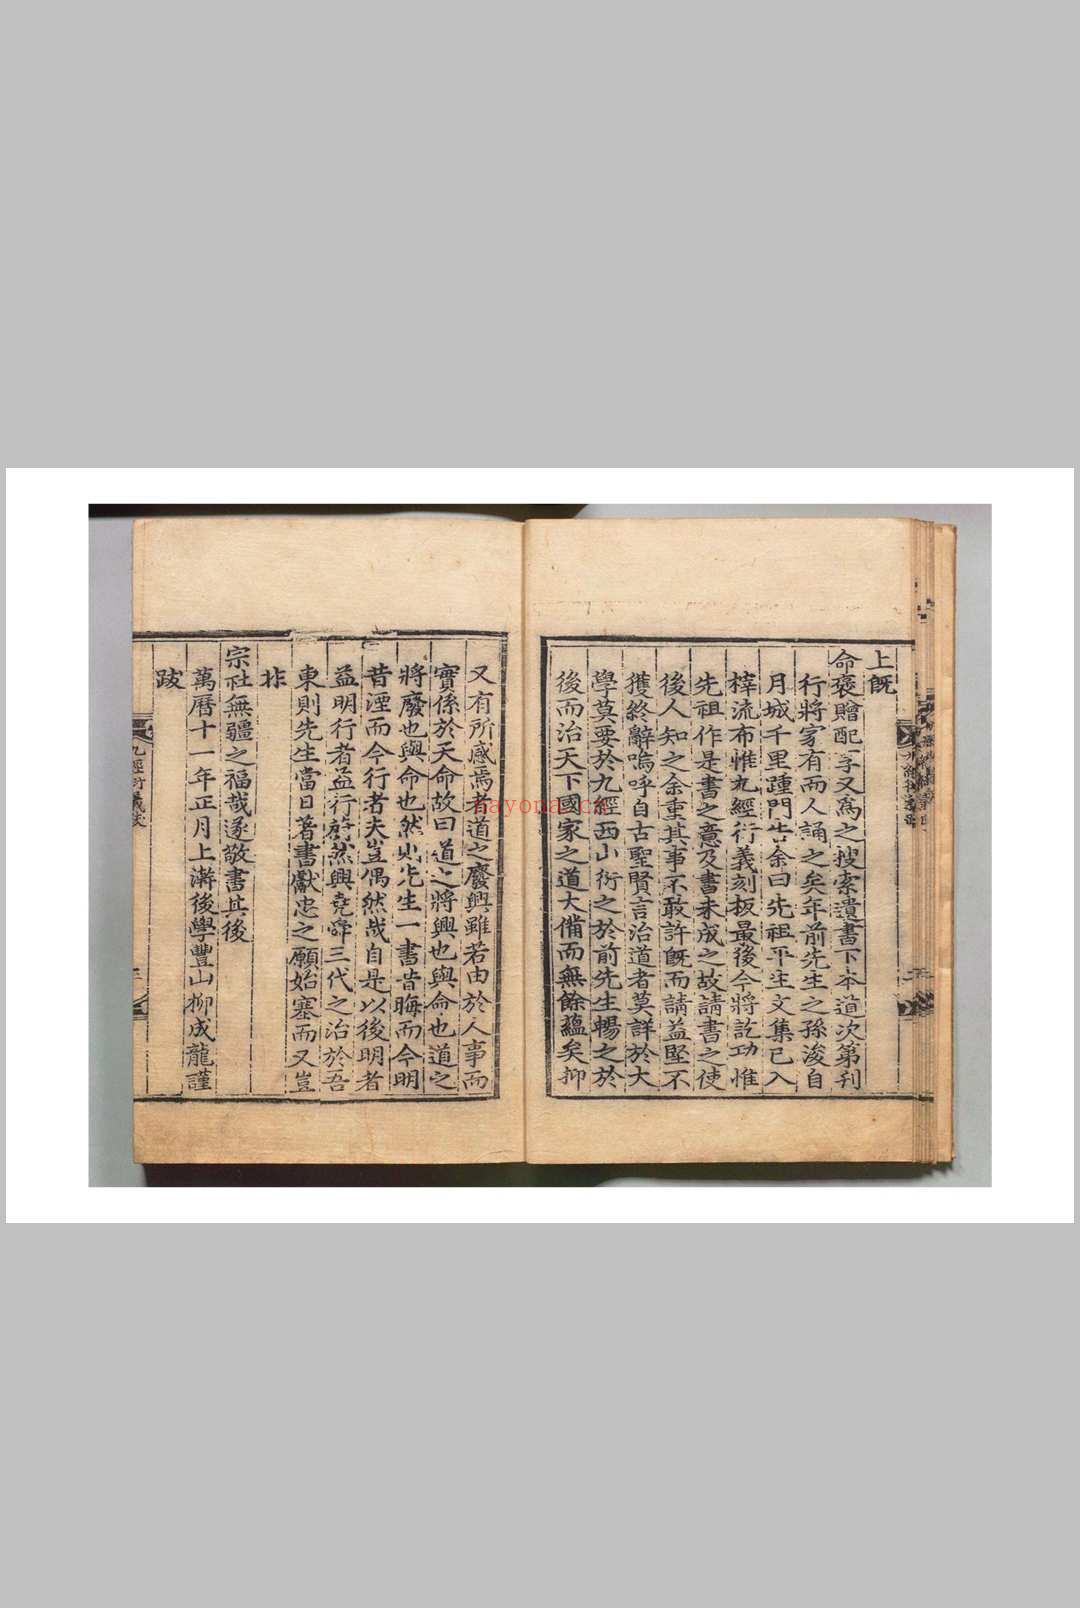 上既
命褒贈配享又爲之搜索遺書下本道次第刋
行將家有而人誦之矣年前先生之孫浚自
月城千里踵門告余曰先祖平生文集已入
梓流布惟九經行義刻板最後今將訖功惟
先祖作是書之意及書未成之故請書之使
後人知之余重其事不敢許既而請益堅不
獲終辭嗚呼自古聖賢言治道者莫詳於大
學莫要於九經西山衍之於前先生暢之於
後而治天下國家之道大備而無餘蘊矣抑
又有所感焉者道之廢興雖若由於人事而
實係於天命故曰道之將興也與命也道之
將廢也與命也然則先生一書昔晦而今明
昔湮而今行者夫豈偶然哉自是以後明者
益明行者益行蔚然興堯舜三代之治於吾
東則先生當日著書獻忠之願始塞而又豈
非
宗社無疆之福哉遂敬書其後
萬曆十一年正月上澣後學豐山柳成龍謹
跋
nayona.cn